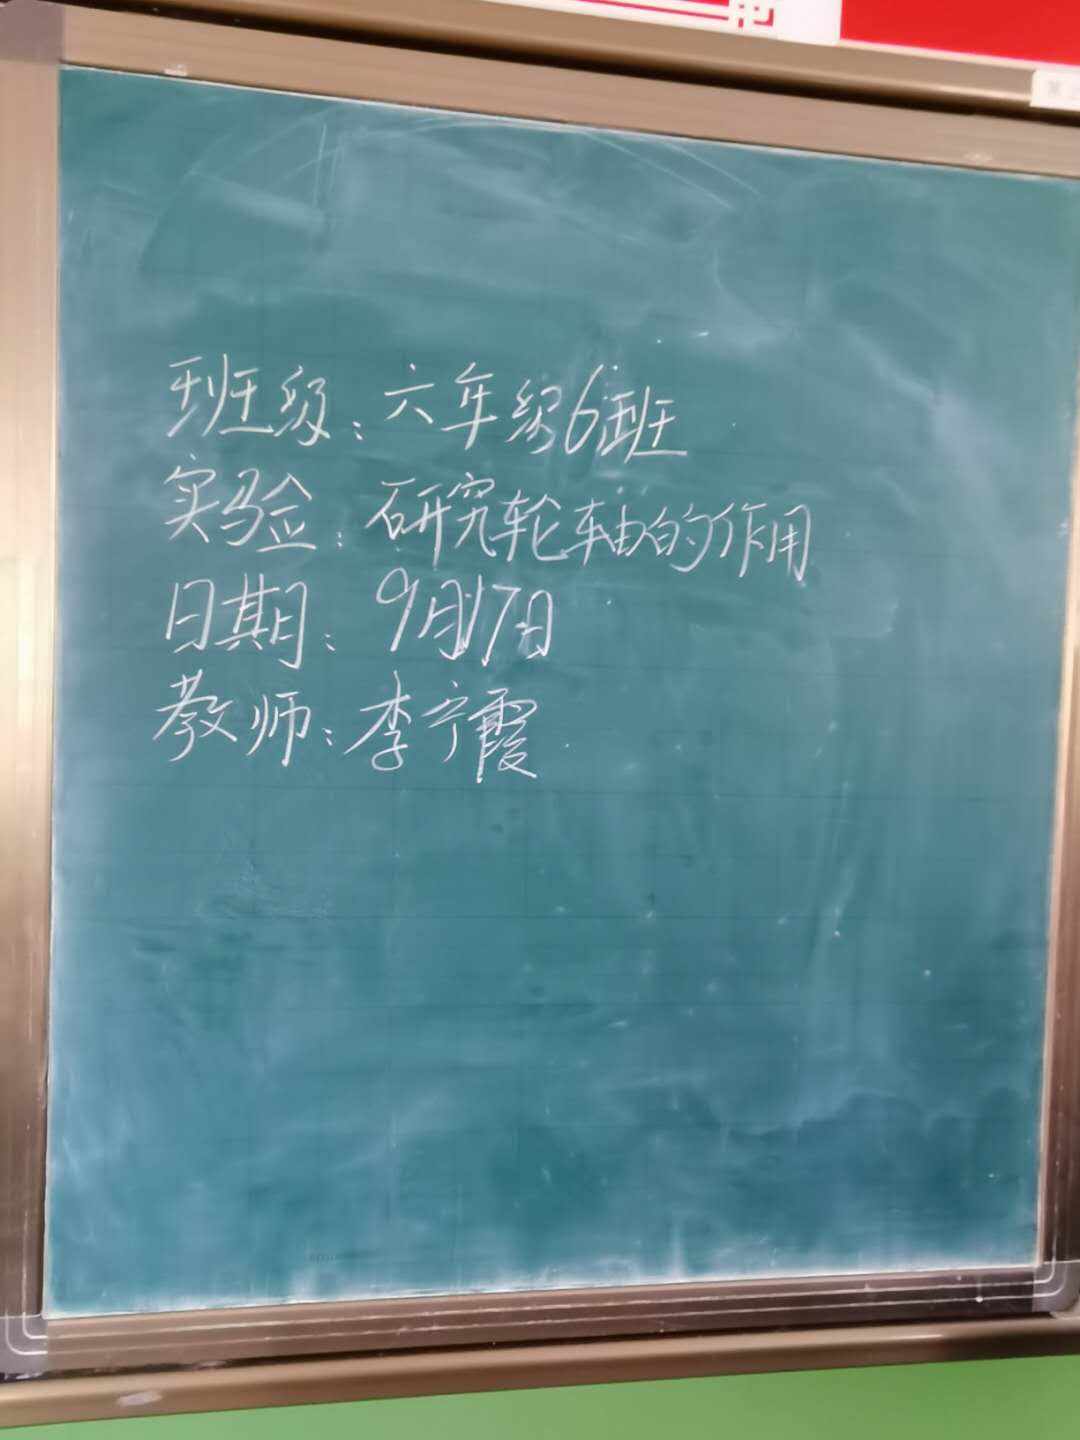 班级：六年级6班
实验：研究轮轴的作用
日期：9月17日
教师：李宁霞